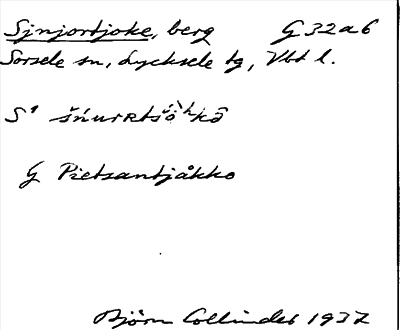 Sjnjortjoke, berg G 32a6
Sorsele sn, Lycksele tg, Vbt l.
S¹
G Pietsantjåkko
Björn Collinder 1937